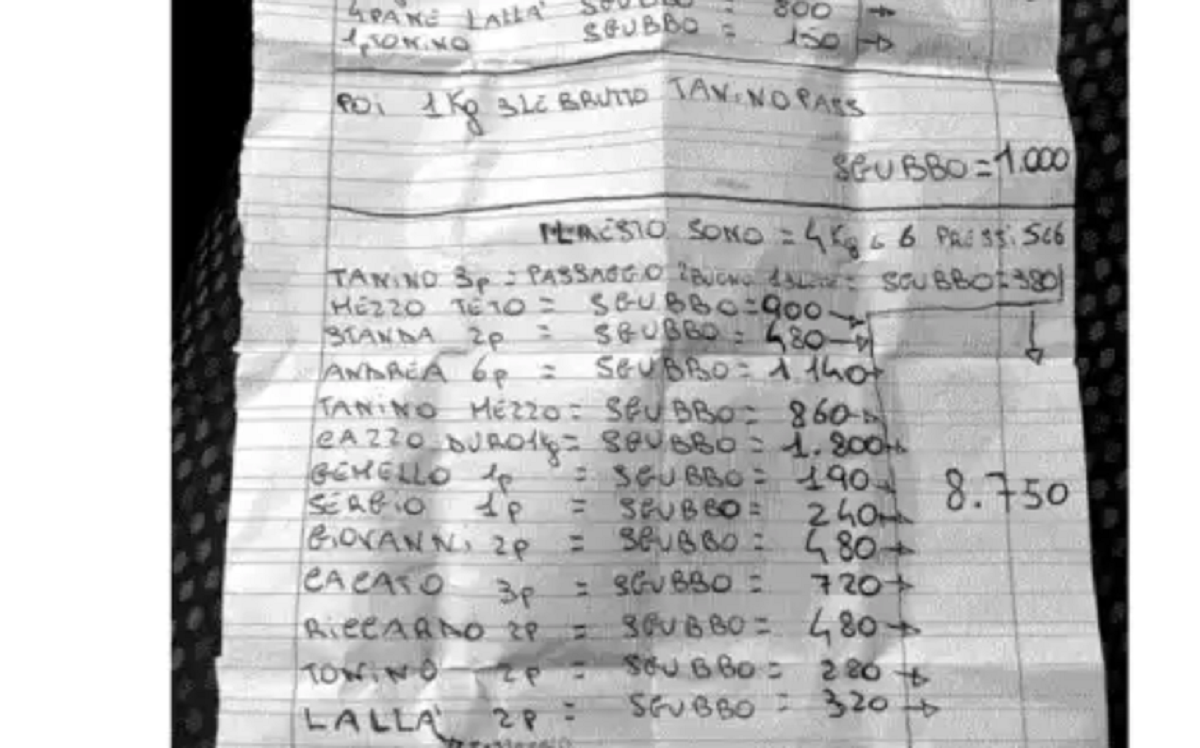 4PANE LALLA' SGUBBO = 800
1pTONINO SGUBBO = 150
POI 1Kg 3LE BRUTTO TANINO PASS
SGUBBO = 1.000
SONO = 4Kg 6 PRESSi
TANINO 3p = PASSAGGIO = SGUBBO = 380
MEZZO TETO = SGUBBO = 900
STANDA 2p = SGUBBO = 480
ANDREA 6p = SGUBBO = 1140
TANINO MEZZO = SGUBBO = 860
CAZZO DURO 1kg = SGUBBO = 1.800
GEMELLO 1p = SGUBBO = 190
SERGIO 1p = SGUBBO = 240
8.750
GIOVANNi 2p = SGUBBO = 480
CACATO 3p = SGUBBO = 720
RICCARDO 2P = SGUBBO = 480
TONINO 2P = SGUBBO = 280
LALLA' 2P = SGUBBO = 320